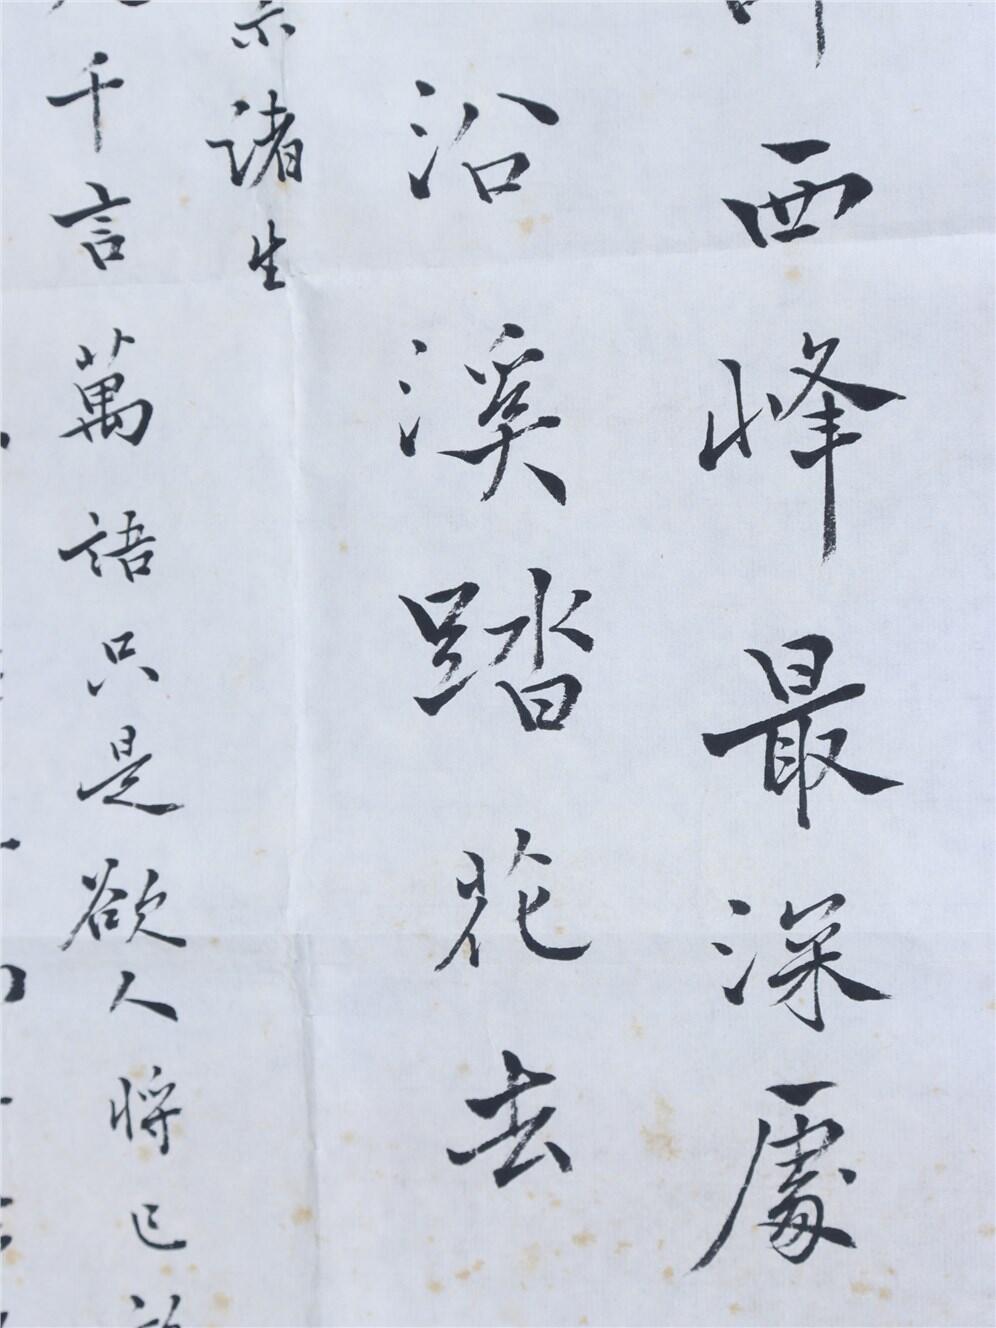 西峰最深處
沿溪踏花去
示諸生
千言萬語只是欲人將已